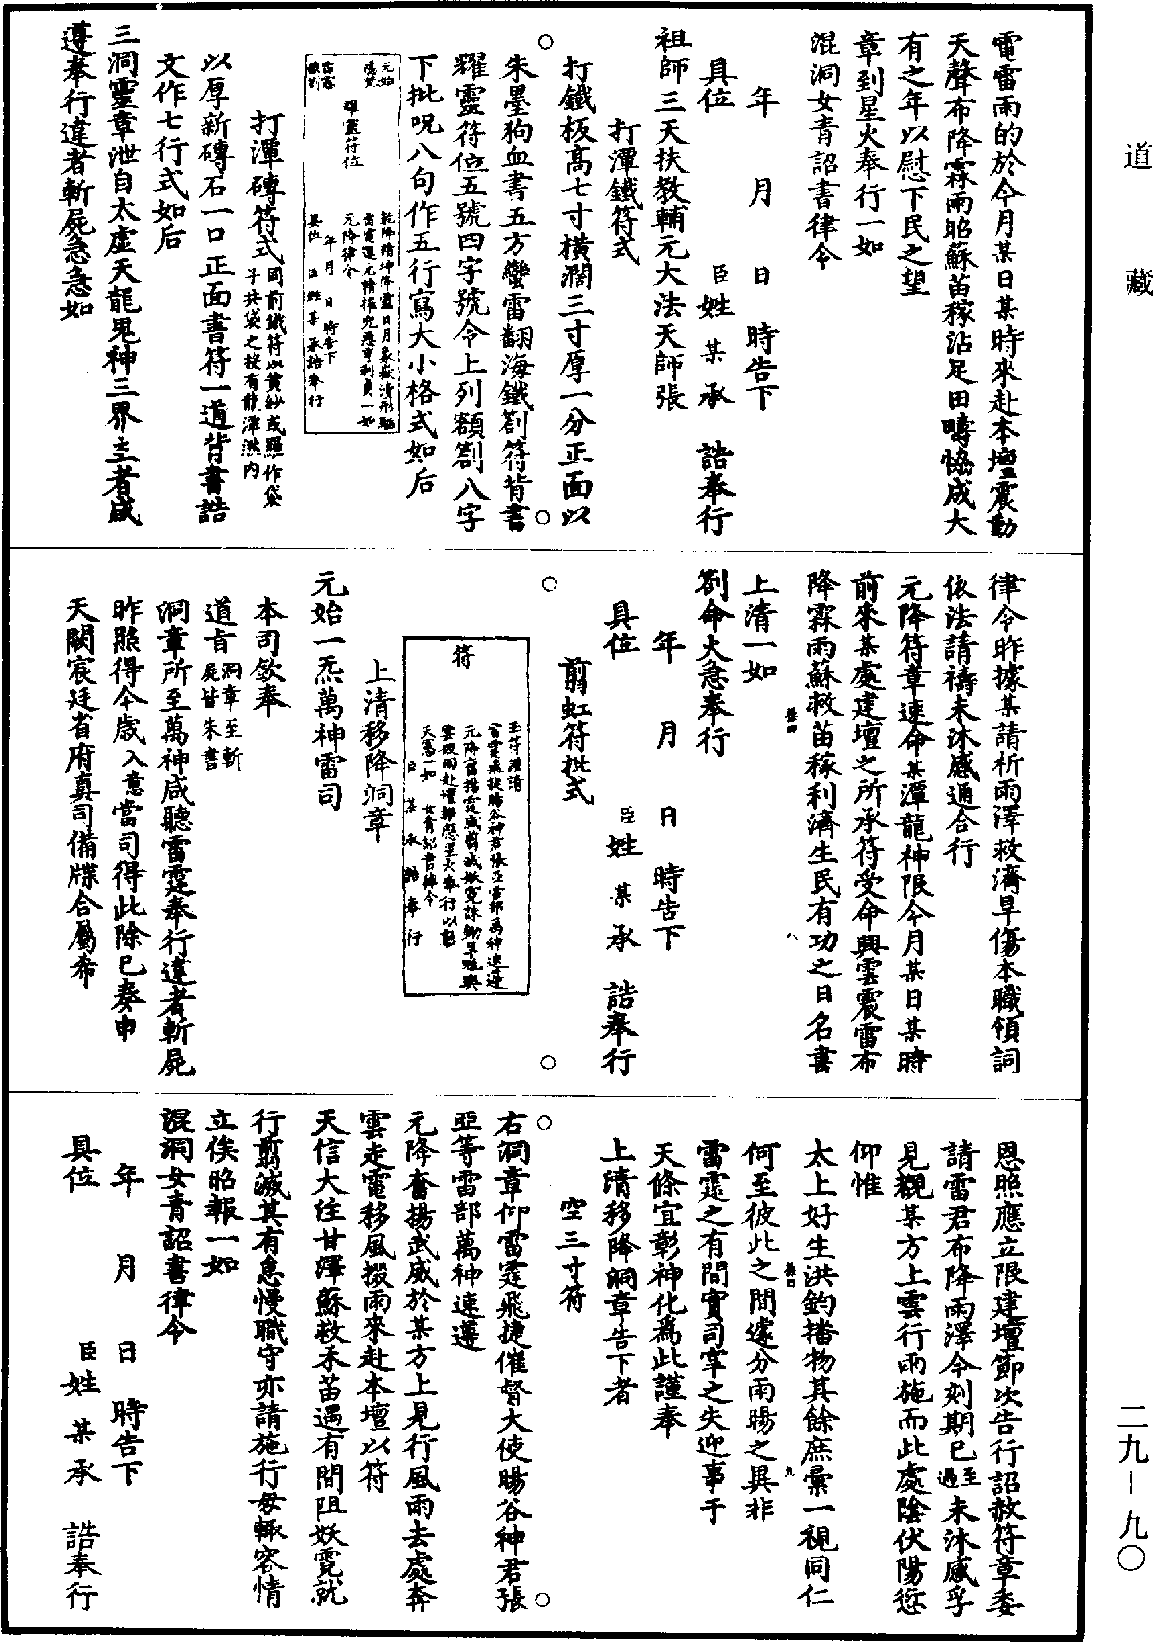 道藏
二九—九〇
電雷雨的於今月某日某時來赴本壇震動
天聲布降霖雨昭蘇苗稼沾足田疇恊成大
有之年以慰下民之望
章到星火奉行一如
混洞女青詔書律令
年　月　日　時告下
具位　臣姓某承　誥奉行
祖師三天扶教輔元大法天師張
打潭鐵符式
打鐵板高七寸橫濶三寸厚一分正面以
朱墨狗血書五方蠻雷翻海鐵劄符背書
耀靈符位五號四字號令上列額劄八字
下批呪八句作五行寫大小格式如后
耀靈符位
元降律令
年　月　日　時告下
具位　臣姓某承誥奉行
打潭磚符式
同前鐵符以黄紗或羅作袋
子抉袋之投有龍潭湫內
以厚新磚石一口正面書符一道背書誥
文作七行式如后
三洞靈章泄自太虛天龍鬼神三界主者咸
遵奉行違者斬屍急急如
律令昨據某請祈雨澤救濟旱傷本職領詞
依法請禱未沐感通合行
元降符章速命某潭龍神限今月某日某時
前來某處建壇之所承符受命興雲震雷布
降霖雨蘇救苗稼利濟生民有功之日名書
上清一如
劄命火急奉行
年　月　日　時告下
具位　臣姓某承　誥奉行
剪虹符批式
符
元降奮揚雯威剪滅妖霓誅鋤旱魃興
天憲一如　女青詔書律令
臣　某　承　誥　奉　行
上清移降洞章
元始一炁萬神雷司
本司欽奉
道旨
洞章至斬
屍皆朱書
洞章所至萬神咸聽雷霆奉行違者斬屍
昨照得今歲入意當司得此除已奏申
天闕宸廷省府真司備牒合屬希
恩照應立限建壇節次告行詔赦符章委
請雷君布降雨澤今刻期已至過未沐感孚
見覩某方上雲行雨施而此處陰伏陽愆
仰惟
太上好生洪鈞播物其餘庶彙一視同仁
何至彼此之間遽分雨暘之異非
雷霆之有間實司宰之失迎事于
天條宜彰神化為此謹奉
上清移降洞章告下者
空三寸符
右洞章仰雷霆飛捷催督大使暘谷神君張
亞等雷部萬神速遵
元降奮揚武威於某方上見行風雨去處奔
雲走電移風掇雨來赴本壇以符
天信大注甘澤蘇救禾苗遇有間阻妖霓就
行剪滅其有怠慢職守亦請施行毋輒容情
立俟昭報一如
混洞女青詔書律令
年　月　日　時告下
具位　臣姓某承　誥奉行